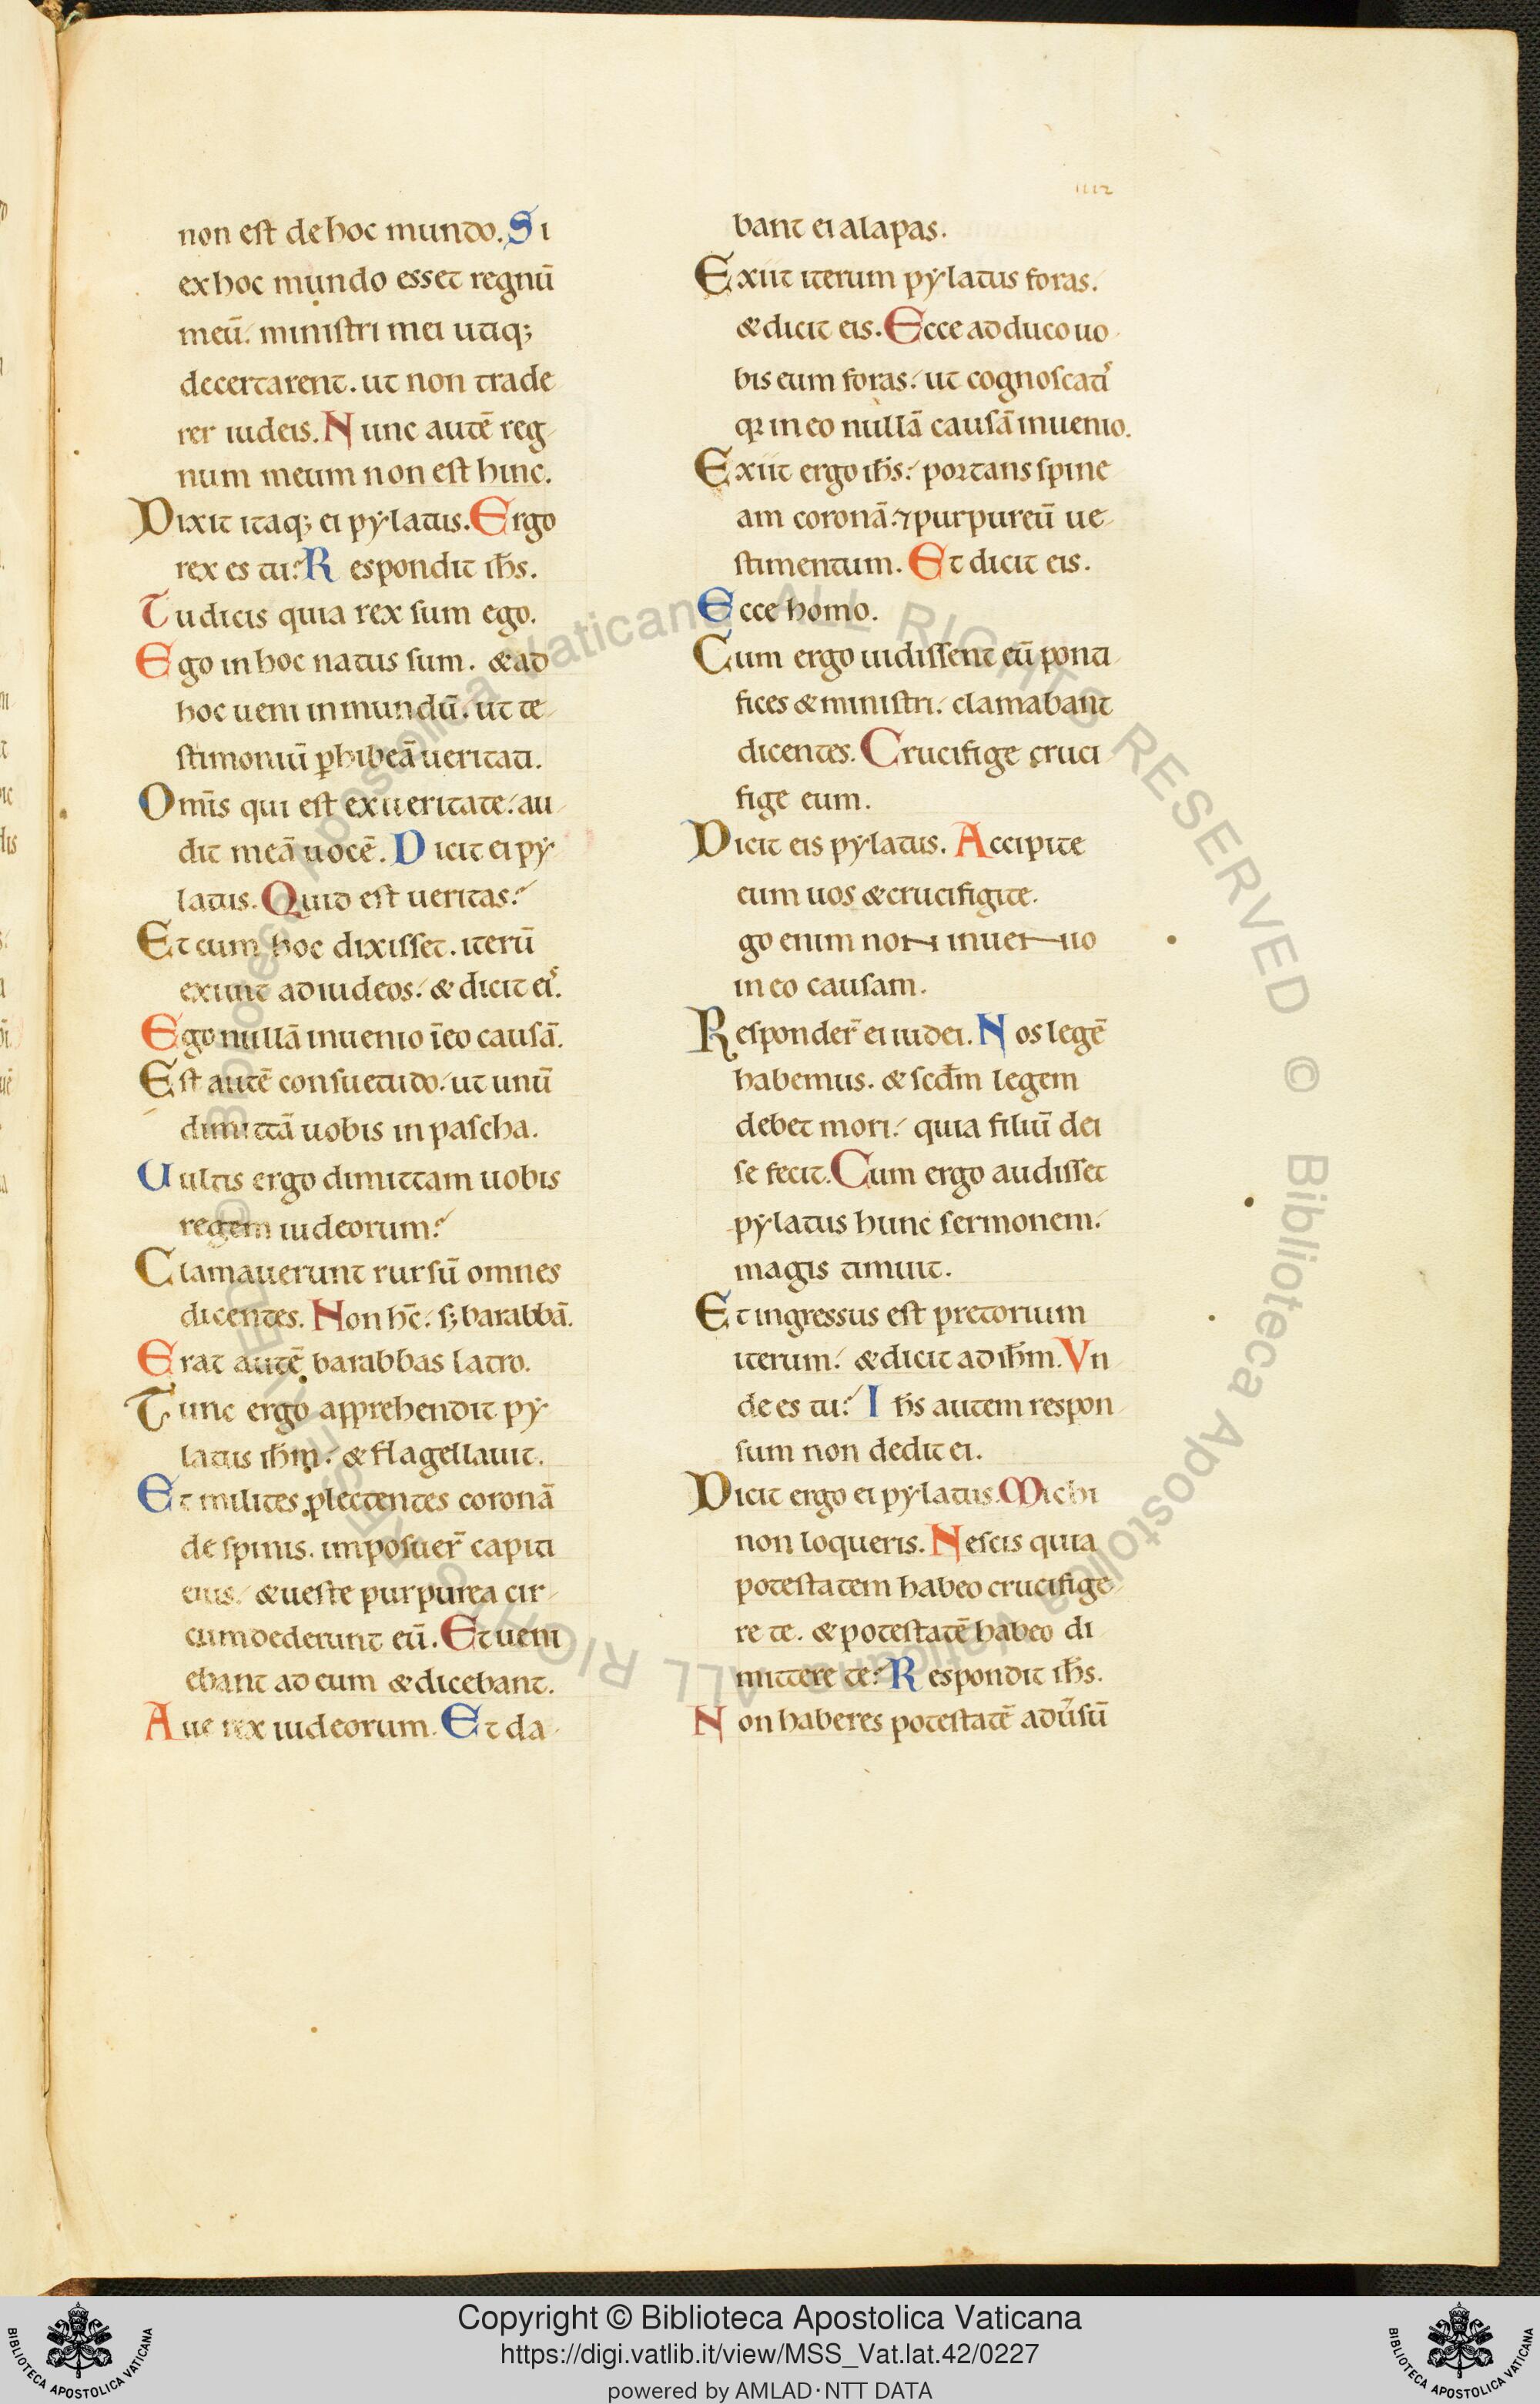 non est de hoc mundo. Si
ex hoc mundo esset regnū
meū. ministri mei utiq;
decertarent. ut non trade
rer iudeis. Nunc autē reg
num meum non est hinc.
Dixit itaq; ei pẏlatus. Ergo
rex es tu? Respondit ih̄s.
Tu dicis quia rex sum ego.
Ego in hoc natus sum. & ad
hoc ueni in mundū. ut te
stimoniū ꝑhibeā ueritati.
Om̄is qui est ex ueritate. au
dit meā uocē. Dicit ei pẏ
latus. Quid est ueritas?
Et cum hoc dixisset. iterū
exiuit ad iudeos. & dicit eiˢ.
Ego nullā inuenio ī eo causā.
Est autē consuetudo. ut unū
dimittā uobis in pascha.
Uultis ergo dimittam uobis
regem iudeorum?
Clamauerunt rursū omnes
dicentes. Non hc̄. s; barabbā.
Erat autē barabbas latro.
Tunc ergo apprehendit pẏ
latus ih̄m. & flagellauit.
Et milites plectentes coronā
de spinis. imposuer̄ capiti
eius. & ueste purpurea cir
cumdederunt eū. Et ueni
ebant ad eum & dicebant.
Aue rex iudeorum. Et da
IIII2
bant ei alapas.
Exiit iterum pẏlatus foras.
& dicit eis. Ecce adduco uo
bis eum foras. ut cognoscatiˢ
qꝛ in eo nullā causā inuenio.
Exiit ergo ih̄s. portans spine
am coronā. ⁊ purpureū ue
stimentum. Et dicit eis.
Ecce homo.
Cum ergo uidissent eū ponti
fices & ministri. clamabant
dicentes. Crucifige cruci
fige eum.
Dicit eis pylatus. Accipite
eum uos & crucifigite.
go enim non inuenio
in eo causam.
Responder̄ ei iudei. Nos legē
habemus. & scd̄m legem
debet mori. quia filiū dei
se fecit. Cum ergo audisset
pẏlatus hunc sermonem.
magis timuit.
Et ingressus est pretorium
iterum. & dicit ad ih̄m. Vn
de es tu? Ih̄s autem respon
sum non dedit ei.
Dicit ergo ei pẏlatus. Michi
non loqueris. Nescis quia
potestatem habeo crucifige
re te. & potestatē habeo di
mittere te? Respondit ih̄s.
Non haberes potestatē adu̾sū
© Biblioteca Apostolica Vaticana ALL RIGHTS RESERVED © Biblioteca Apostolica Vaticana ALL RIGHTS RESERVED
Copyright © Biblioteca Apostolica Vaticana
https://digi.vatlib.it/view/MSS_Vat.lat.42/0227
powered by AMLAD·NTT DATA
BIBLIOTECA APOSTOLICA VATICANA
BIBLIOTECA APOSTOLICA VATICANA